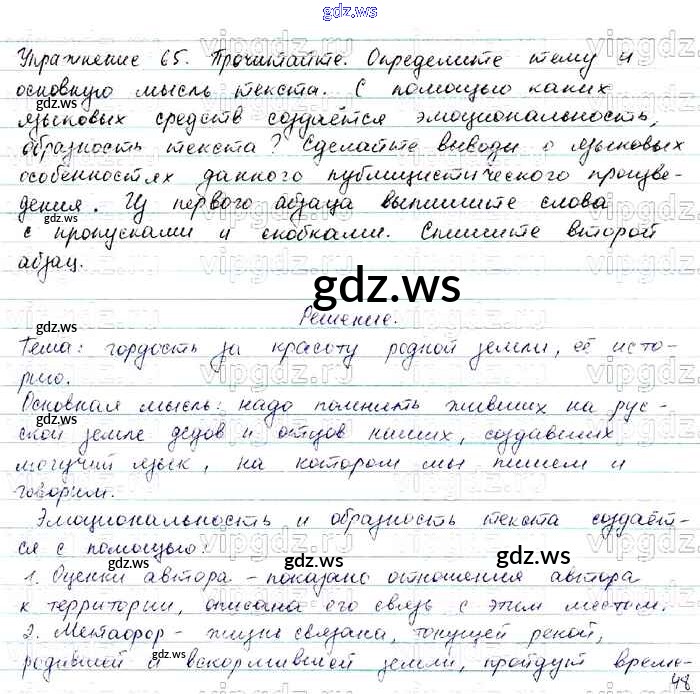 gdz.ws
Упражнение 65. Прочитайте. Определите тему и
основную мысль текста. С помощью каких
языковых средств создаётся эмоциональность,
образность текста? Сделайте выводы о языковых
особенностях данного публицистического произве-
дения. Из первого абзаца выпишите слова
с пропусками и скобками. Спишите второй
абзац.
gdz.ws
Решение.
Тема: гордость за красоту родной земли, её исто-
рию.
Основная мысль: надо помнить живших на рус-
ской земле дедов и отцов наших, создавших
могучий язык, на котором мы пишем и
говорим.
Эмоциональность и образность текста создаёт-
ся с помощью:
1. Оценки автора - показано отношения автора
к территории, описана его связь с этим местом.
2. Метафор - жизнь связана, текущей рекой,
родившей и вскормившей земли, пройдут време-
48